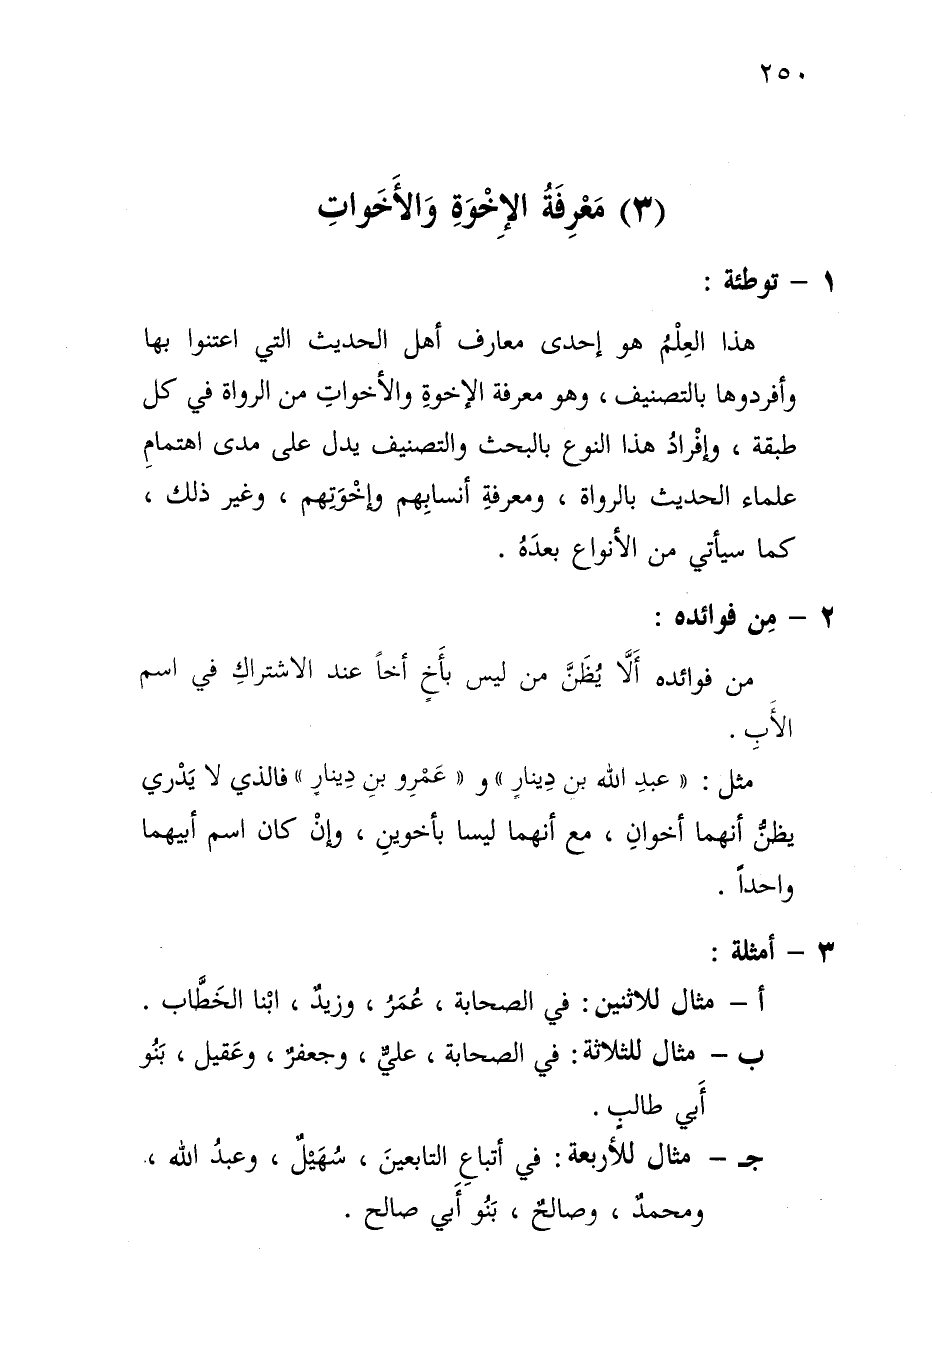 ٢٥٠
(٣) مَعْرِفَةُ الإِخْوَةِ وَالأَخَواتِ
١ – توطئة :
هذا العِلْمُ هو إحدى معارف أهل الحديث التي اعتنوا بها
وأفردوها بالتصنيف ، وهو معرفة الإخوةِ والأخواتِ من الرواة في كل
طبقة ، وإفْرادُ هذا النوع بالبحث والتصنيف يدل على مدى اهتمامِ
علماء الحديث بالرواة ، ومعرفةِ أنسابِهم وإخْوَتِهم ، وغير ذلك ،
كما سيأتي من الأنواع بعدَهُ .
٢ – مِن فوائده :
من فوائده أَلَّا يُظَنَّ من ليس بأَخٍ أخاً عند الاشتراكِ في اسم
الأَبِ .
مثل : « عبدِ الله بن دِينارٍ » و « عَمْرِو بنِ دِينارٍ » فالذي لا يَدْري
يظنُّ أنهما أخوانِ ، مع أنهما ليسا بأخوينِ ، وإنْ كان اسم أبيهما
واحداً .
٣ – أمثلة :
أ – مثال للاثنين : في الصحابة ، عُمَرُ ، وزيدٌ ، ابْنا الخَطَّاب .
ب – مثال للثلاثة : في الصحابة ، عليٌّ ، وجعفرٌ ، وعَقيل ، بَنُو
أَبي طالبٍ .
جـ – مثال للأربعة : في أتباعِ التابعينَ ، سُهَيْلٌ ، وعبدُ الله ،
ومحمدٌ ، وصالحٌ ، بَنُو أَبي صالح .